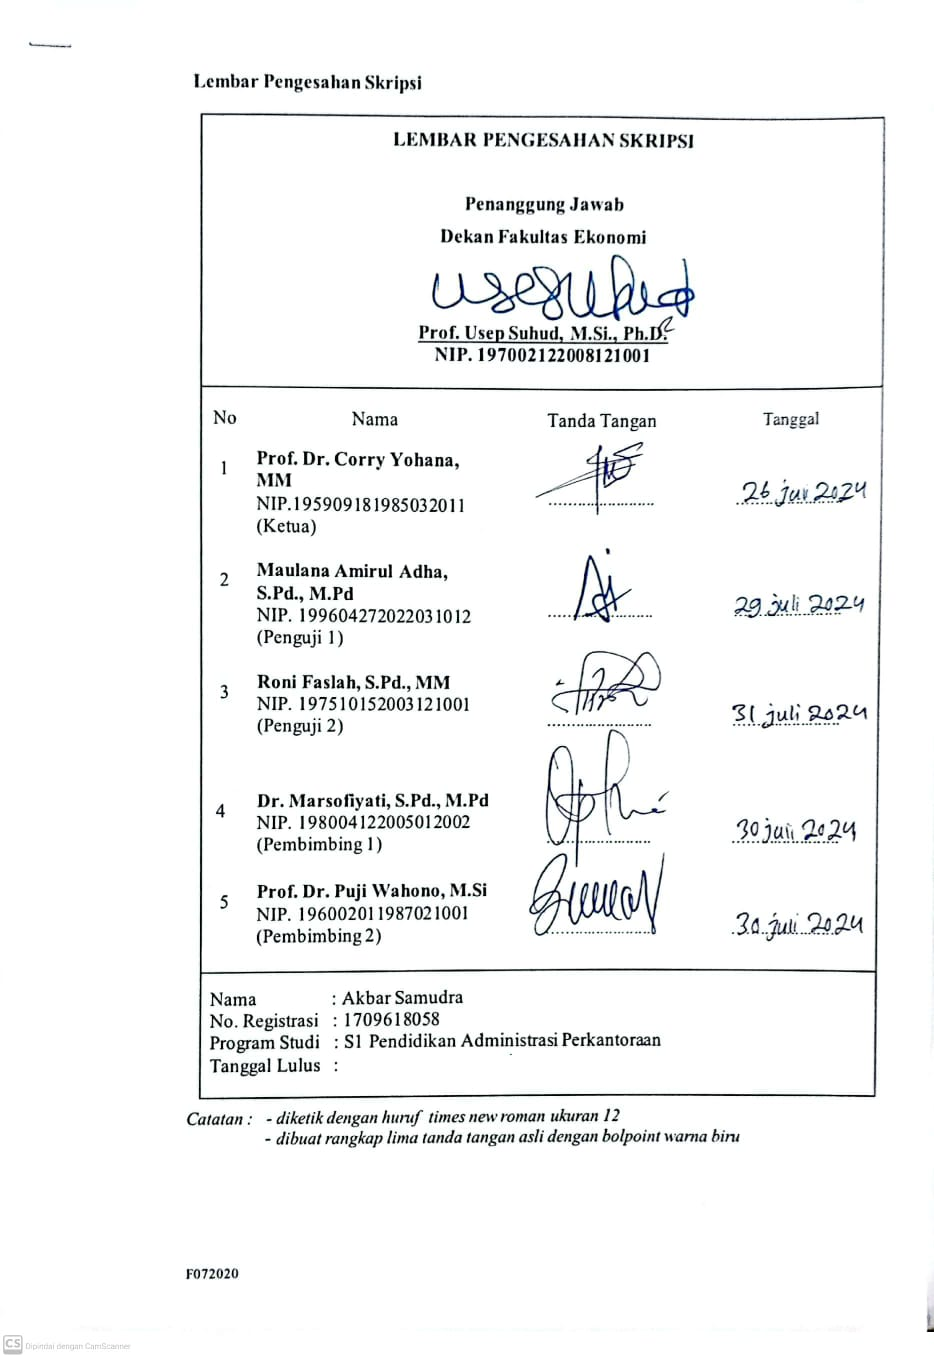 Lembar Pengesahan Skripsi
LEMBAR PENGESAHAN SKRIPSI
Penanggung Jawab
Dekan Fakultas Ekonomi
Prof. Usep Suhud, M.Si., Ph.D.
NIP. 197002122008121001
No Nama Tanda Tangan Tanggal
1 Prof. Dr. Corry Yohana,
MM
NIP.195909181985032011 26 2024
(Ketua)
2 Maulana Amirul Adha,
S.Pd., M.Pd
NIP. 199604272022031012 29 juli 2024
(Penguji 1)
3 Roni Faslah, S.Pd., MM
NIP. 197510152003121001 31 juli 2024
(Penguji 2)
4 Dr. Marsofiyati, S.Pd., M.Pd
NIP. 198004122005012002 30 juli 2024
(Pembimbing 1)
5 Prof. Dr. Puji Wahono, M.Si
NIP. 196002011987021001 30 juli 2024
(Pembimbing 2)
Nama : Akbar Samudra
No. Registrasi : 1709618058
Program Studi : S1 Pendidikan Administrasi Perkantoraan
Tanggal Lulus :
Catatan : - diketik dengan huruf times new roman ukuran 12
- dibuat rangkap lima tanda tangan asli dengan bolpoint warna biru
F072020
CS Dipindai dengan CamScanner